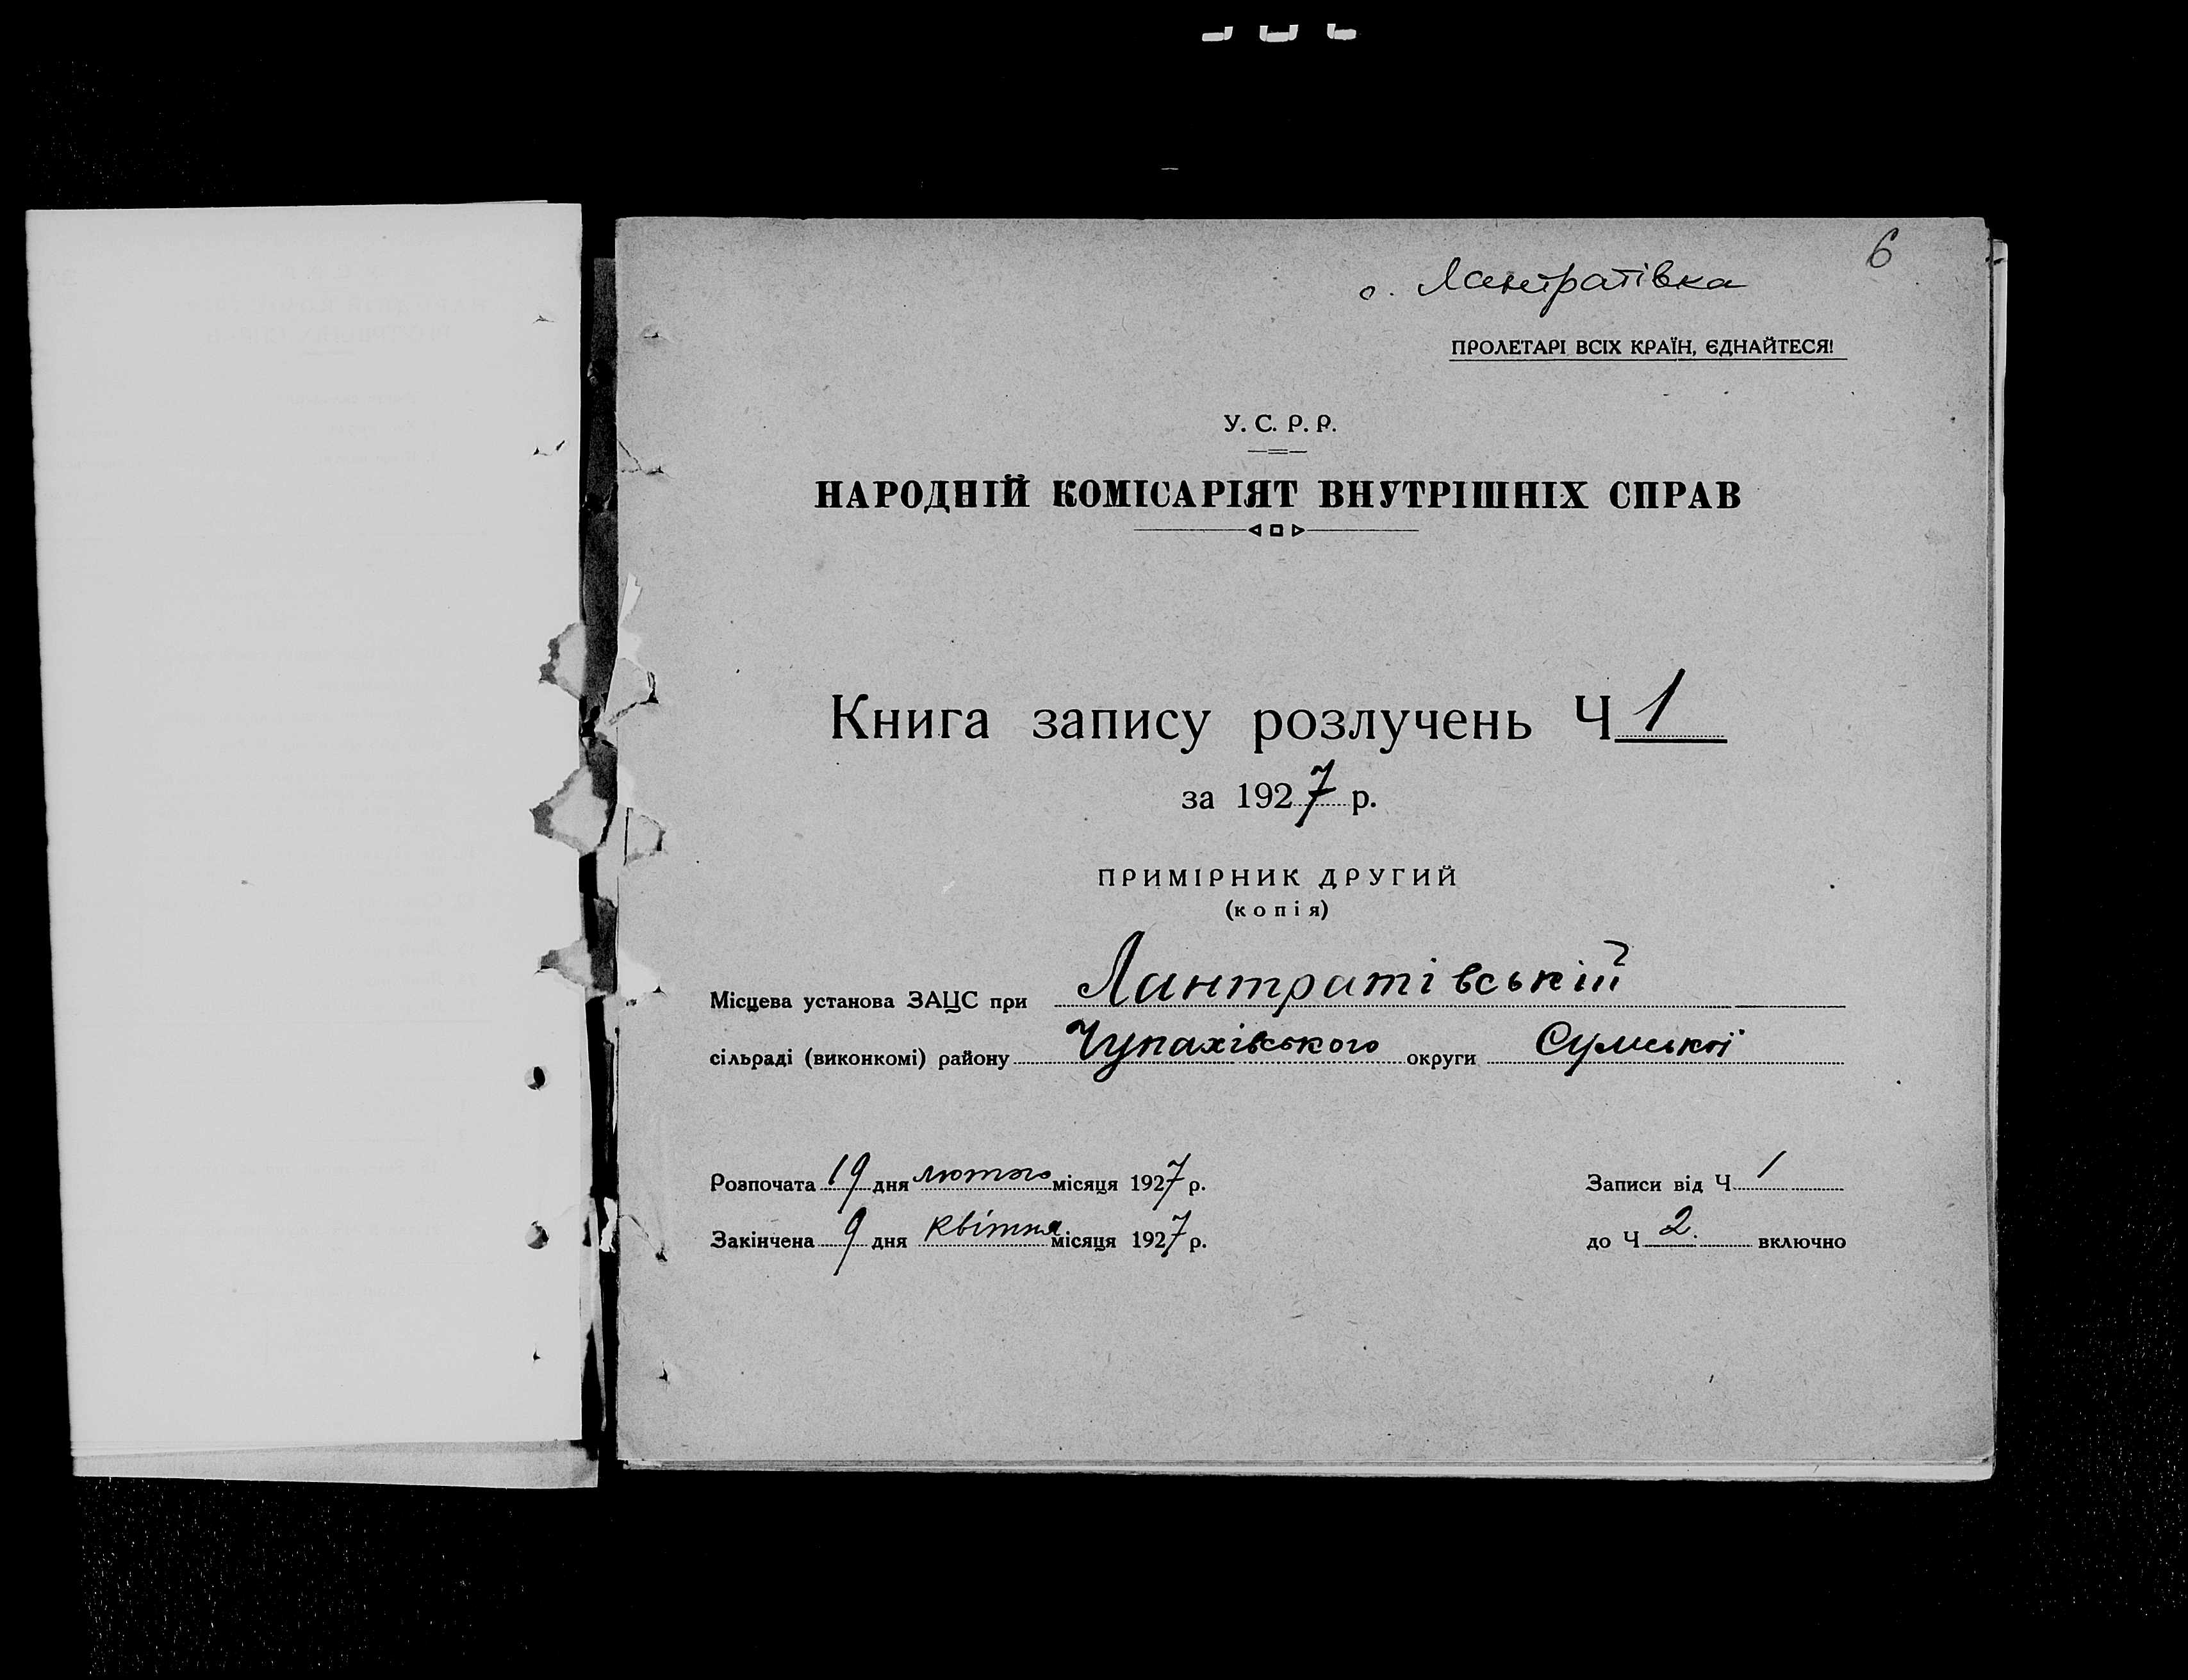 6
с. Лантратівка
ПРОЛЕТАРІ ВСІХ КРАЇН, ЄДНАЙТЕСЯ!
У. С. Р. Р.
НАРОДНІЙ КОМІСАРІЯТ ВНУТРІШНІХ СПРАВ
Книга запису розлучень Ч 1
за 1927 р.
ПРИМІРНИК ДРУГИЙ
(копія)
Місцева установа ЗАЦС при Лантратівській
сільраді (виконкомі) району Чупахівського округи Сумської
Розпочата 19 дня лютого місяця 1927 р. Записи від Ч 1
Закінчена 9 дня квітня місяця 1927 р. до Ч 2. включно